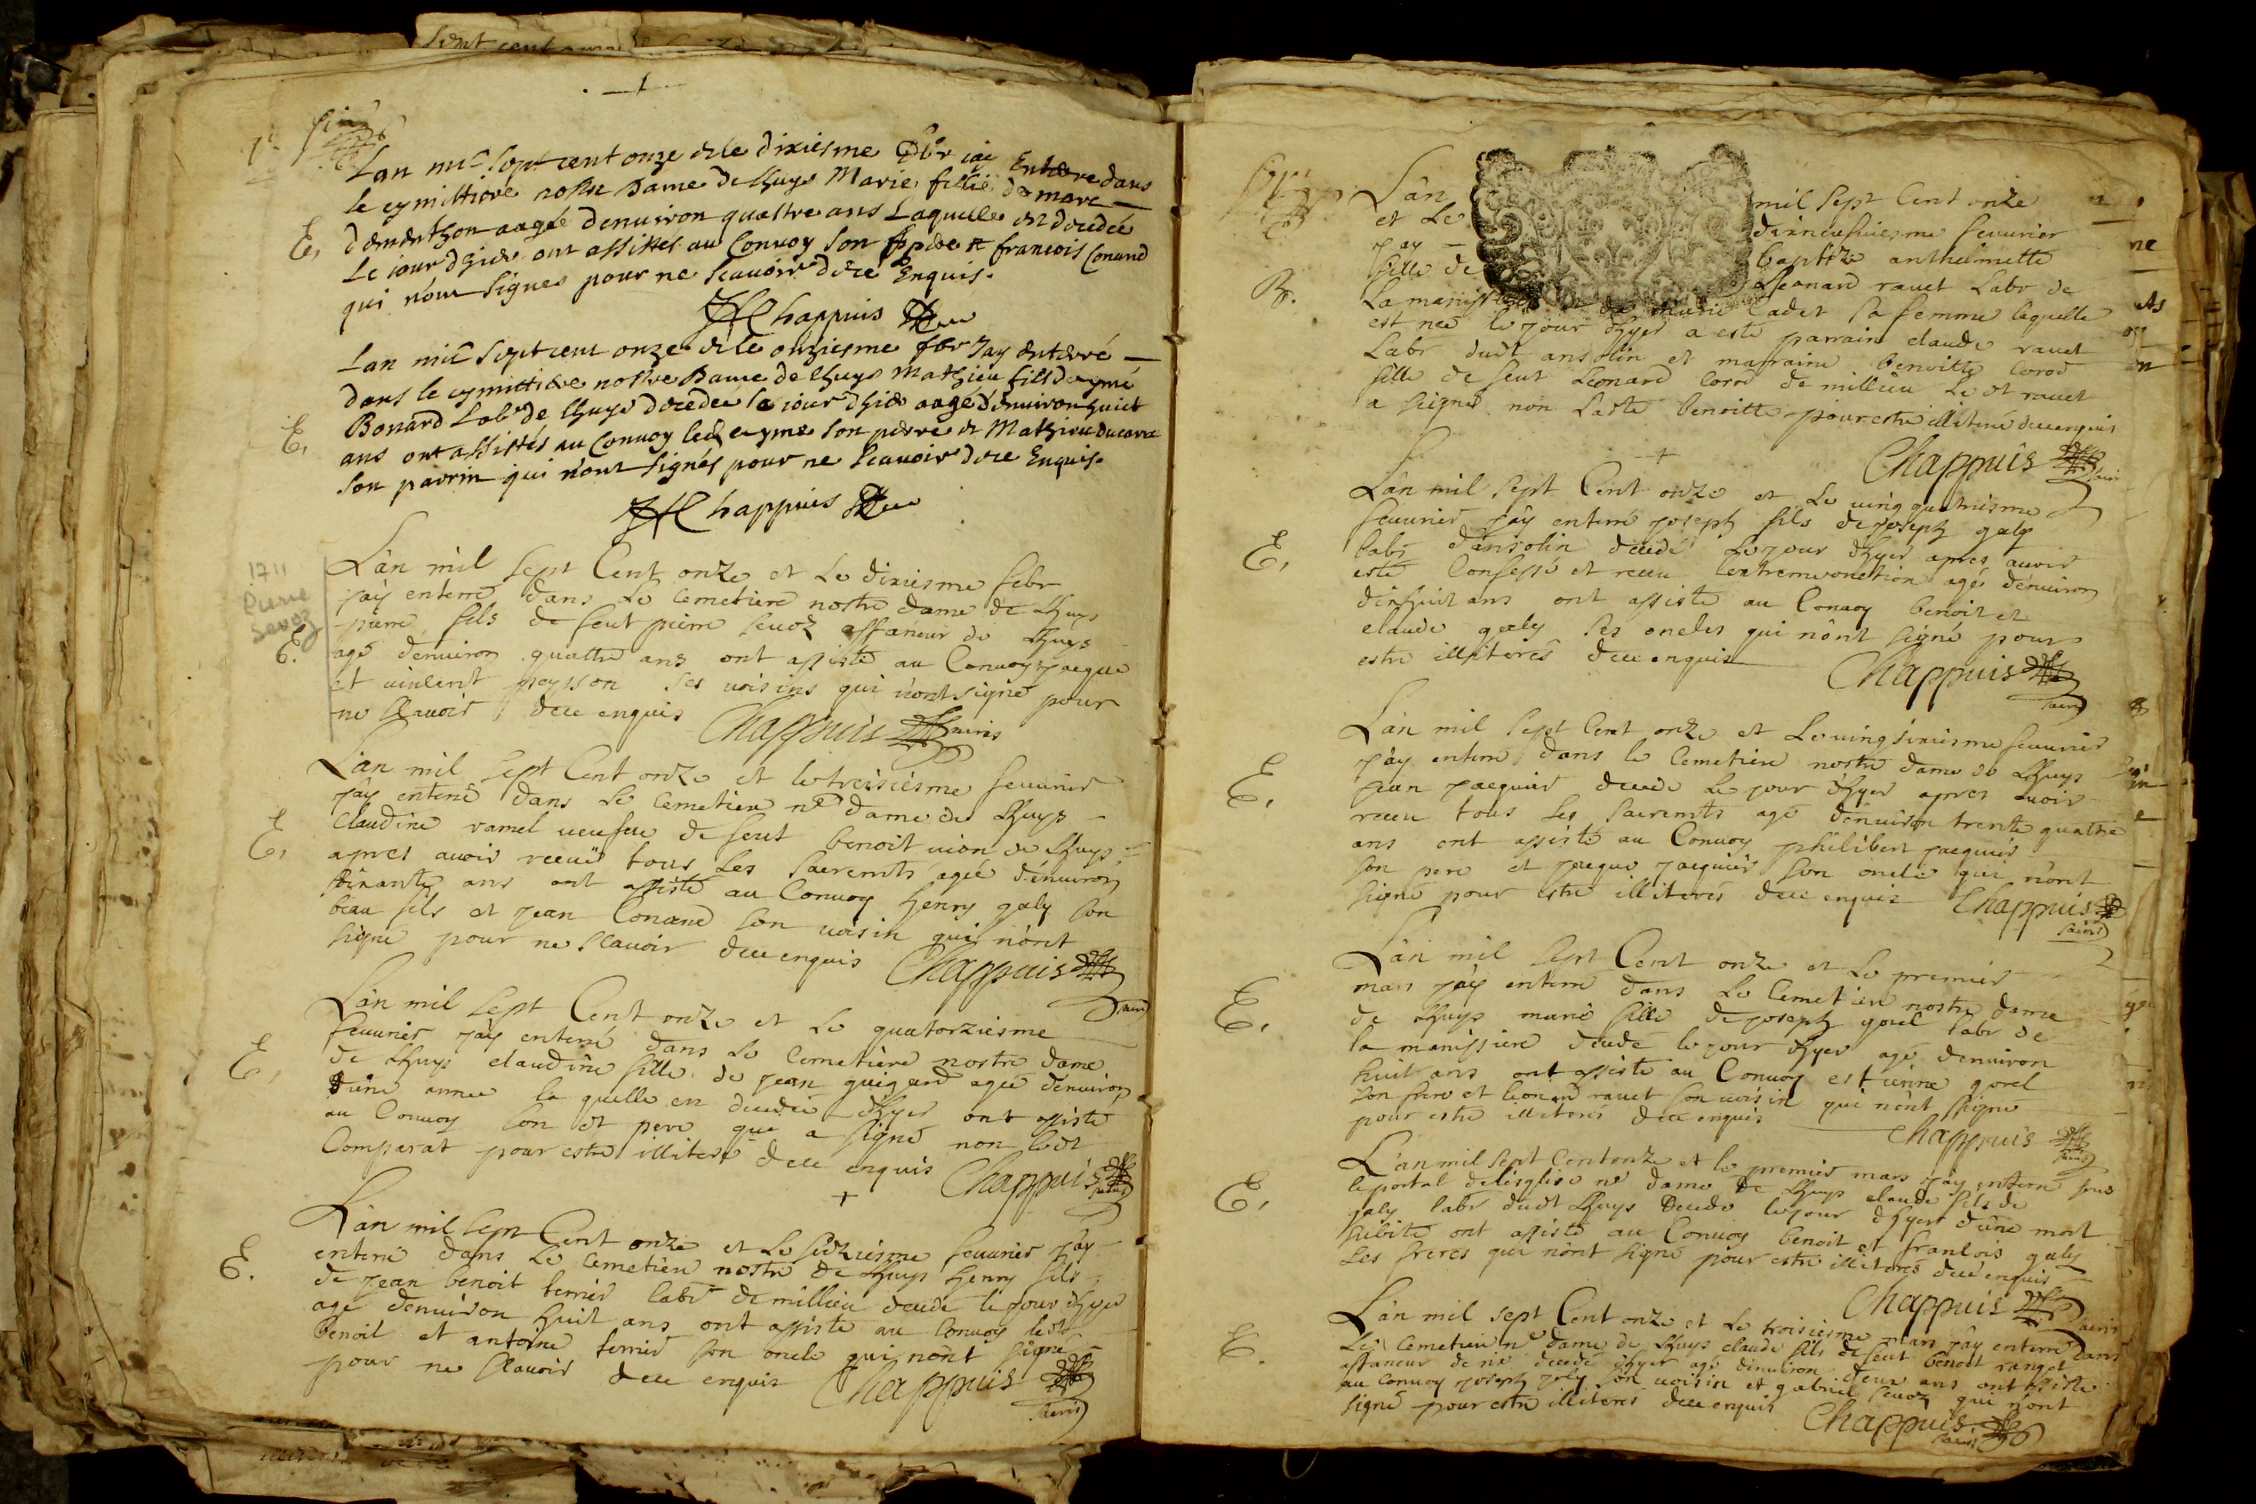 Lan mil sept cent onze et le dixiesme iay Enterre dans
le cymittiere nostre Dame de lhuys Marie fillie de marc
E, aagée denuiron quattre ans Laquelle est decedée
Le iour dhier ont assistés au Convoy son père et francois Conand
qui nont signes pour ne scauoir de ce Enquis.
Chappuis
Lan mil sept cent onze et le onziesme Jay enterré
dans le cymittiere nostre Dame de lhuys Mathieu fils deymé
E, Bonard Labr de lhuys decedee le iour dhier aagé denuiron huict
ans ont assistés au Convoy led eyme son perre et Mathieu
son parrin qui nont signés pour ne scauoir de ce Enquis.
Chappuis
1711
Pierre
Sevoz
L'an mil sept Cent onze et le dixiesme febr
j'ay enterré dans le Cemetiere nostre dame de Lhuys
pierre fils de feut pierre seuoz affaneur de Lhuys
E. agé d'enuiron quattre ans ont assisté au Conuoy jacque
et uincent peysson ses uoisins qui n'ont signé pour
ne scauoir de ce enquis Chappuis
L'an mil sept Cent onze et le treisiesme feuurier
j'ay enterré dans le Cemetiere nre dame de Lhuys
E, Claudine ramel ueufue de feut benoit uion de Lhuys
apres auoir receu tous les sacremts agée d'enuiron
ans ont assisté au Conuoy henry galy son
beau fils et jean Conand son uoisin qui n'ont
signé pour ne scauoir de ce enquis Chappuis
L'an mil sept Cent onze et le quatorziesme
feuurier j'ay enterré dans le Cemetiere nostre dame
E, de Lhuys claudine fille de jean guigard agée d'enuiron
d'une annee la quelle est decedée dhyer ont assisté
au Conuoy son dt pere que a signé non ledt
Comparat pour estre illiteré de ce enquis Chappuis
L'an mil sept Cent onze et le seiziesme feuurier j'ay
enterré dans le Cemetiere nostre de Lhuys henry fils
E. de jean benoit ternier labr de millieu decedé le jour dhyer
agé denuiron huit ans ont assisté au Conuoy ledt
benoit et antoine ternier son oncle qui n'ont signé
pour ne scauoir de ce enquis Chappuis
L'an mil sept Cent onze
et le feuurier
j'ay baptizé anthelmette
fille de Leonard rauet Labr de
B. la manissiere et de marie Cadet sa femme laquelle
est neé le jour dhyer a esté parrain claude rauet
Labr dudt ansolin et marraine benoitte Corod
fille de feut Leonard Corod de millieu Le dt rauet
a signé non laditte benoitte pour estre illiteré de ce enquis
Chappuis
L'an mil sept Cent onze et le uing quatriesme
feuurier j'ay enterré joseph fils de joseph galy
E, labr dansolin decedé le jour dhyer apres auoir
esté Confessé et receu L'extremeonction agé d'enuiron
dixhuit ans ont assisté au Conuoy benoit et
claude galy ses oncles qui n'ont signé pour
estre illiterés de ce enquis Chappuis
L'an mil sept Cent onze et le uingsixiesme feuurier
j'ay enterré dans le Cemetiere nostre dame de Lhuys
E, jean jacquier decedé le jour d'hyer apres auoir
receu tous les sacremts agé d'enuiron trente quattre
ans ont assisté au Conuoy philibert jacquier
son pere et jacque jacquier son oncle qui n'ont
signé pour estre illiterés de ce enquis Chappuis
L'an mil sept Cent onze et le premier
mars j'ay enterré dans le Cemetiere nostre dame
E, de Lhuys marie fille de joseph gorel labr de
la manissiere decedé le jour dhyer agé denuiron
huit ans ont assisté au Conuoy estienne gorel
son frere et leonard rauet son uoisin qui n'ont signé
pour estre illiterés de ce enquis Chappuis
L'an mil sept Cent onze et le premier mars j'ay enterré sous
le portal de lesglise nre dame de Lhuys claude fils de
E, galy labr dudt Lhuys decedé le jour d'hyer d'une mort
subite ont assisté au Conuoy benoit et francois galy
ses freres qui n'ont signé pour estre illiterés de ce enquis
Chappuis
L'an mil sept Cent onze et le troisiesme mars j'ay enterré dans
Le Cemetiere nre dame de Lhuys claude fils de feut benoit
E. affaneur de rix decedé dhyer agé d'enuiron deux ans ont assisté
au Conuoy joseph joly son uoisin et gabriel seuoz qui n'ont
signé pour estre illiterés de ce enquis Chappuis